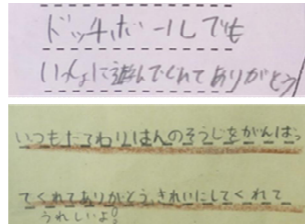 ドッチボールでも
いっしょに遊んでくれてありがとう!
いつもたてわりはんのそうじをがんばっ
てくれてありがとう。きれいにしてくれて
うれしいよ。